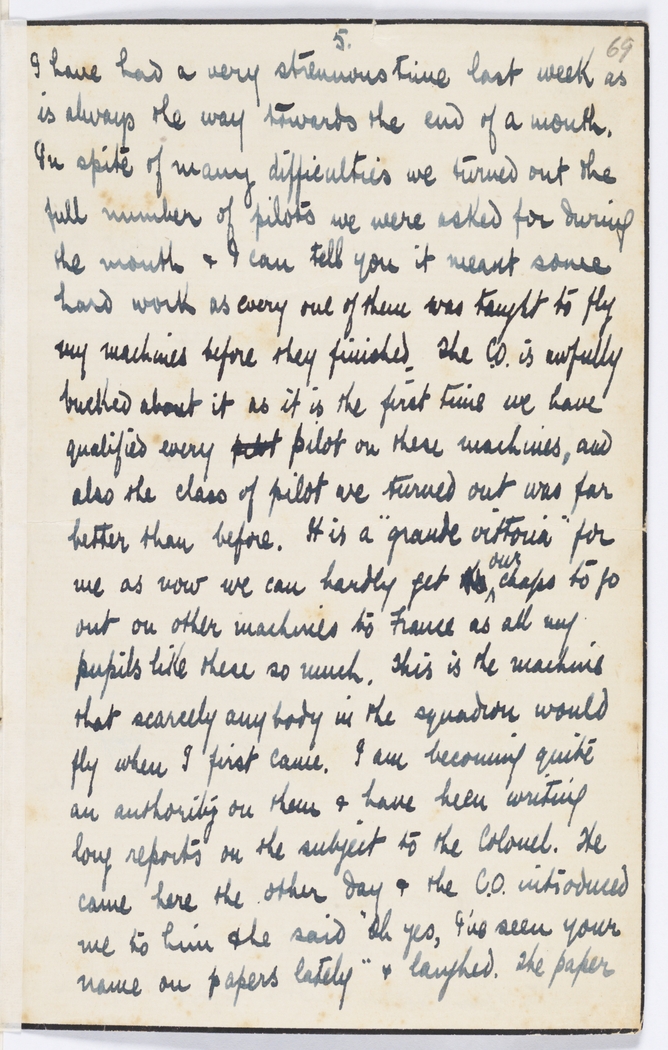 5.
69
I have had a very strenuous time last week as
is always the way towards the end of a month.
In spite of many difficulties we turned out the
full number of pilots we were asked for during
the month & I can tell you it meant some
hard work as every one of them was taught to fly
my machines before they finished. The C.O. is awfully
bucked about it as it is the first time we have
qualified every pilot pilot on these machines, and
also the class of pilot we turned out was far
better than before. It is a "grande vittoria" for
me as now we can hardly get our chaps to go
out on other machines to France as all my
pupils like these so much. This is the machine
that scarcely anybody in the squadron would
fly when I first came. I am becoming quite
an authority on them & have been writing
long reports on the subject to the Colonel. He
came here the other day & the C.O. introduced
me to him & he said "Oh yes, I've seen your
name on papers lately" & laughed. The paper